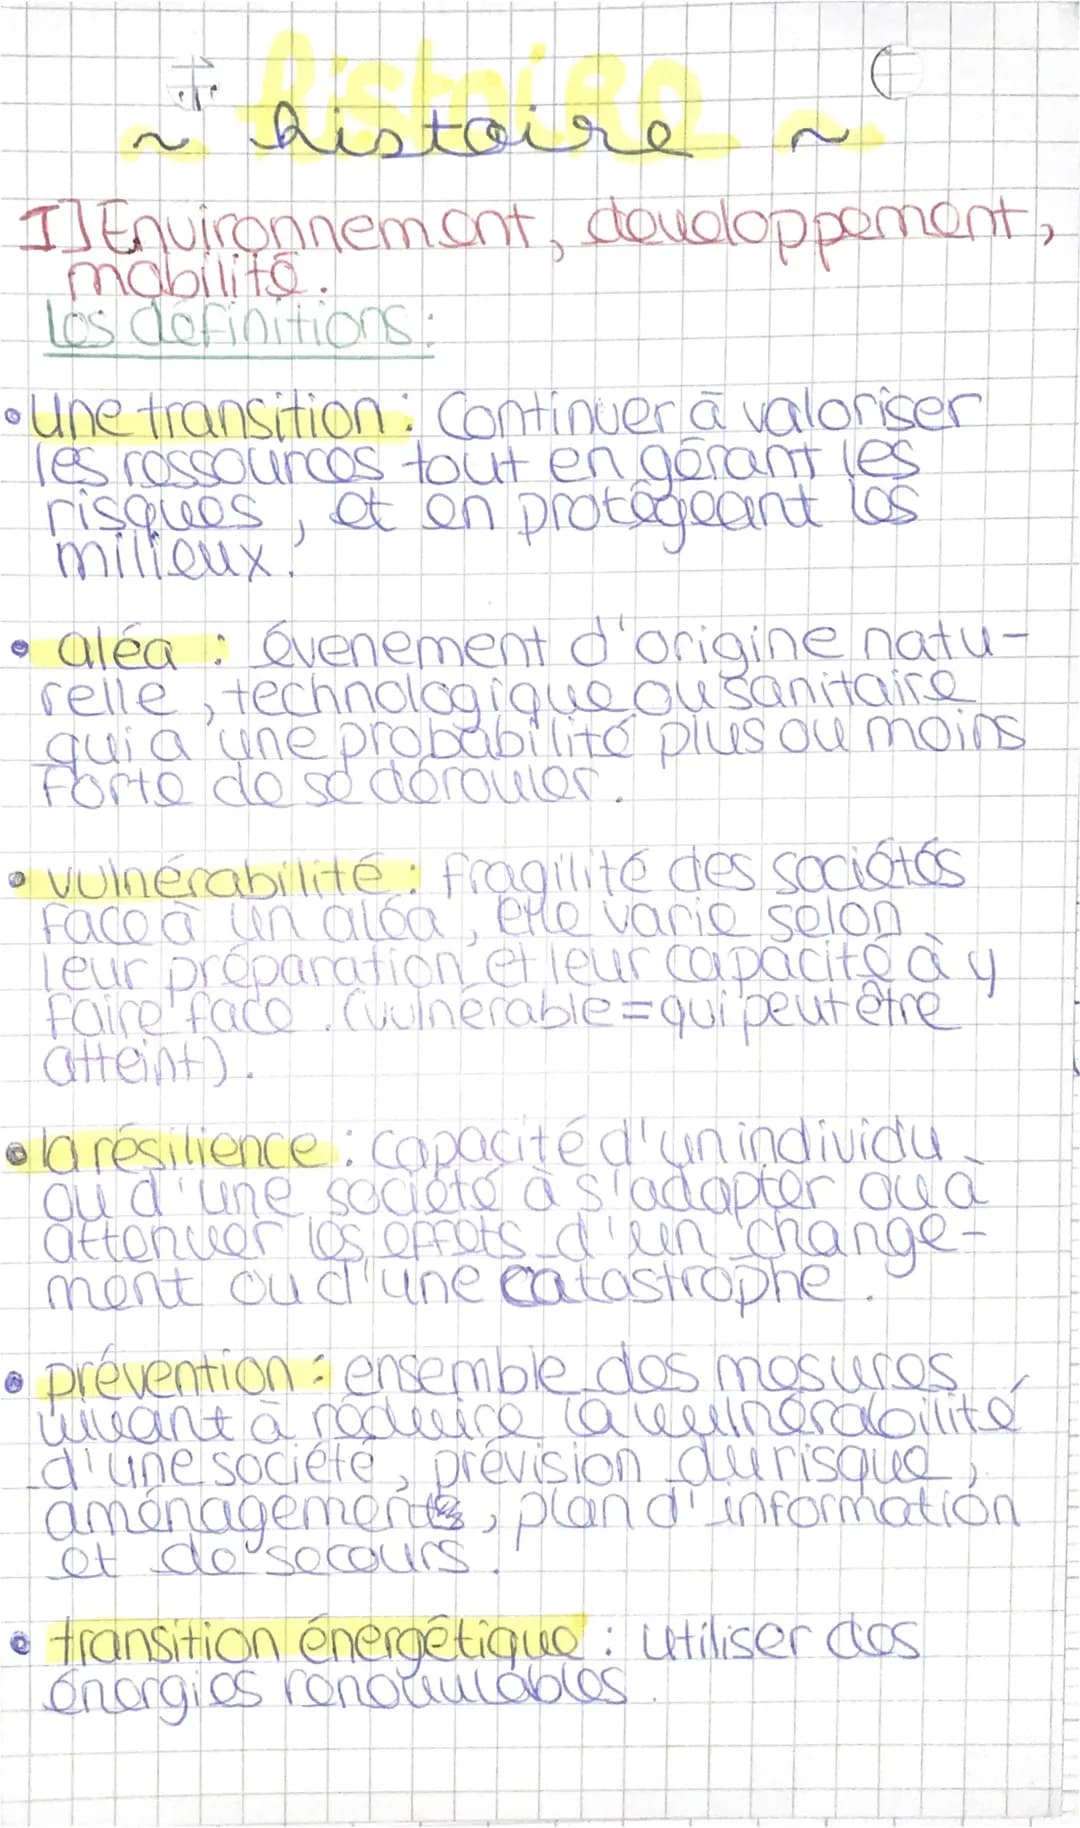 ~ histoire ~
I] Environnement, développement,
mobilité.
Les définitions :
• Une transition : Continuer à valoriser
les ressources tout en gérant les
risques, et en protégeant les
milieux.
• aléa : évenement d'origine natu-
relle, technologique ou sanitaire
qui a une probabilité plus ou moins
forte de se dérouler.
• vulnérabilité : fragilité des sociétés
face à un aléa, elle varie selon
leur préparation et leur capacité à y
faire face. (vulnérable = qui peut être
atteint).
• la résilience : capacité d'un individu
ou d'une société à s'adapter ou à
attenuer les effets d'un change-
ment ou d'une catastrophe.
• prévention : ensemble des mesures
visant à réduire la vulnérabilité
d'une société, prévision du risque,
aménagements, plan d'information
et de secours.
• transition énergétique : utiliser des
énergies renouvulables.